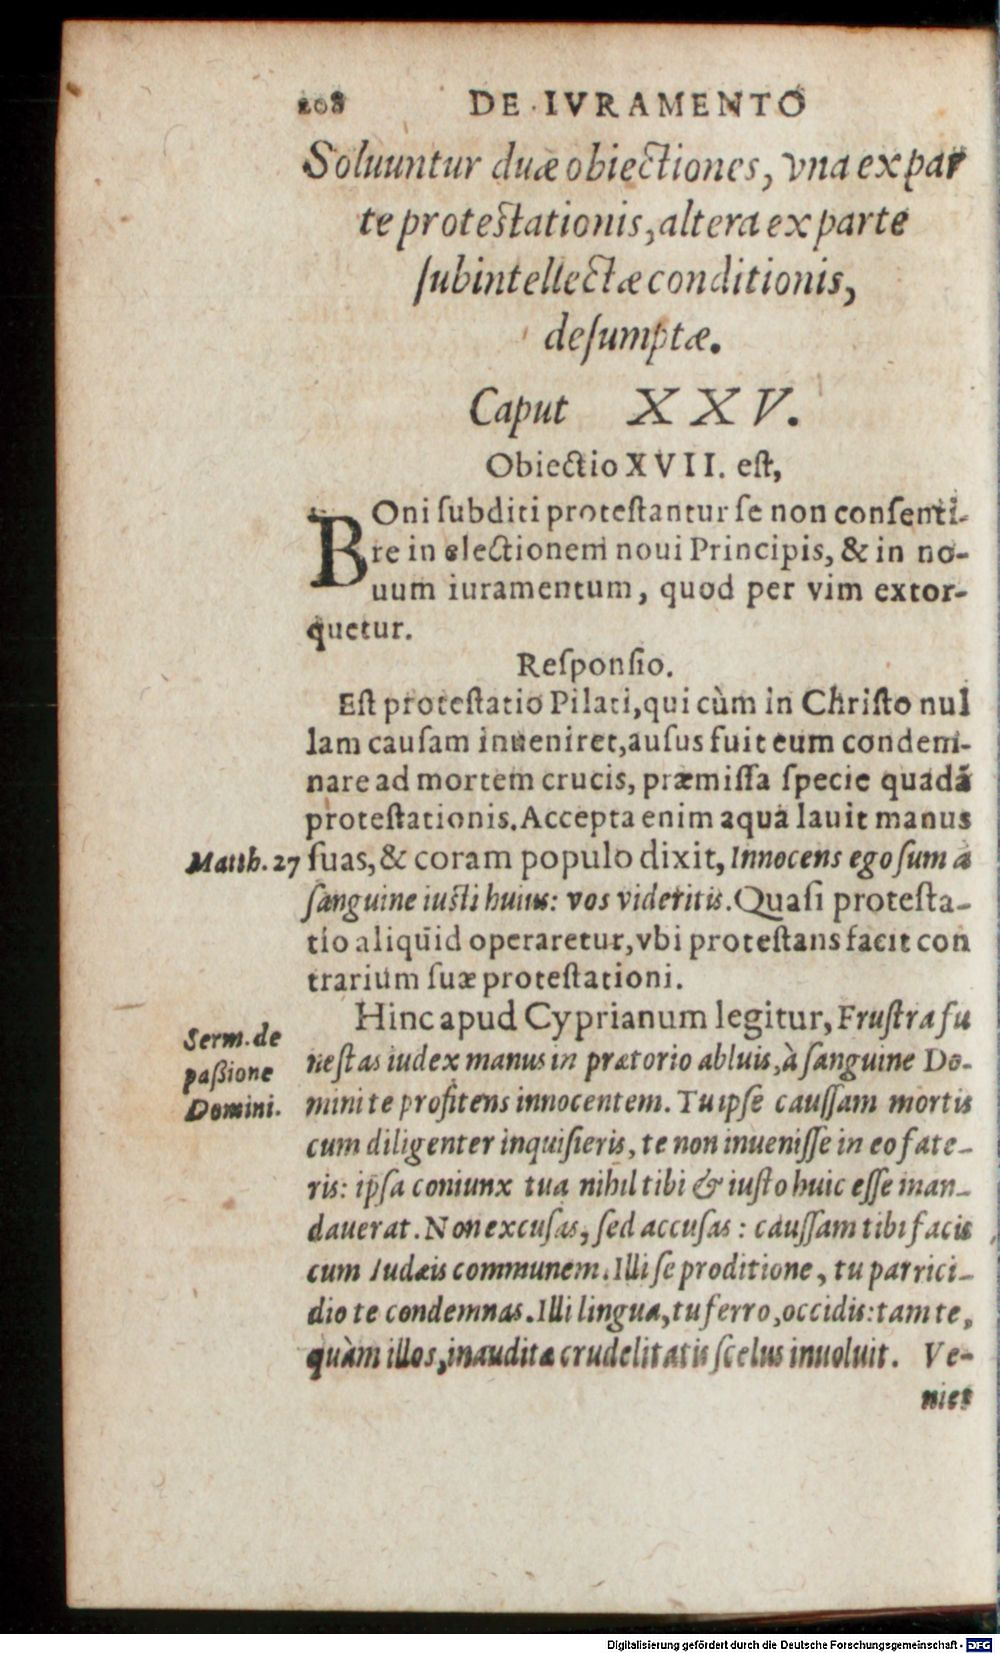 208 DE IVRAMENTO
Soluuntur duæ obiectiones, vna ex par
te protestationis, altera ex parte
ſubintellectæ conditionis,
deſumptæ.
Caput XXV.
Obiectio XVII. eſt,
BOni ſubditi proteſtantur ſe non conſenti-
re in electionem noui Principis, & in no-
uum iuramentum, quod per vim extor-
quetur.
Reſponſio.
Eſt proteſtatio Pilati, qui cùm in Chriſto nul
lam cauſam inueniret, auſus fuit eum condem-
nare ad mortem crucis, præmiſſa ſpecie quadã
proteſtationis. Accepta enim aqua lauit manus
Matth. 27 ſuas, & coram populo dixit, Innocens ego ſum à
ſanguine iusti huius: vos videritis. Quaſi proteſta-
tio aliquid operaretur, vbi proteſtans facit con
trarium ſuæ proteſtationi.
Hinc apud Cyprianum legitur, Fruſtra fu
Serm. de
paßione
Domini.
nestas iudex manus in prætorio abluis, à ſanguine Do-
mini te profitens innocentem. Tu ipſe cauſſam mortis
cum diligenter inquiſieris, te non inueniſſe in eo fate-
ris: ipſa coniunx tua nihil tibi & iuſto huic eſſe man-
dauerat. Non excuſas, ſed accuſas: cauſſam tibi facis
cum Iudæis communem. Illi ſe proditione, tu parrici-
dio te condemnas. Illi lingua, tu ferro, occidis: tam te,
quàm illos, inaudita crudelitatis ſcelus inuoluit. Ve-
niet
Digitalisierung gefördert durch die Deutsche Forschungsgemeinschaft - DFG